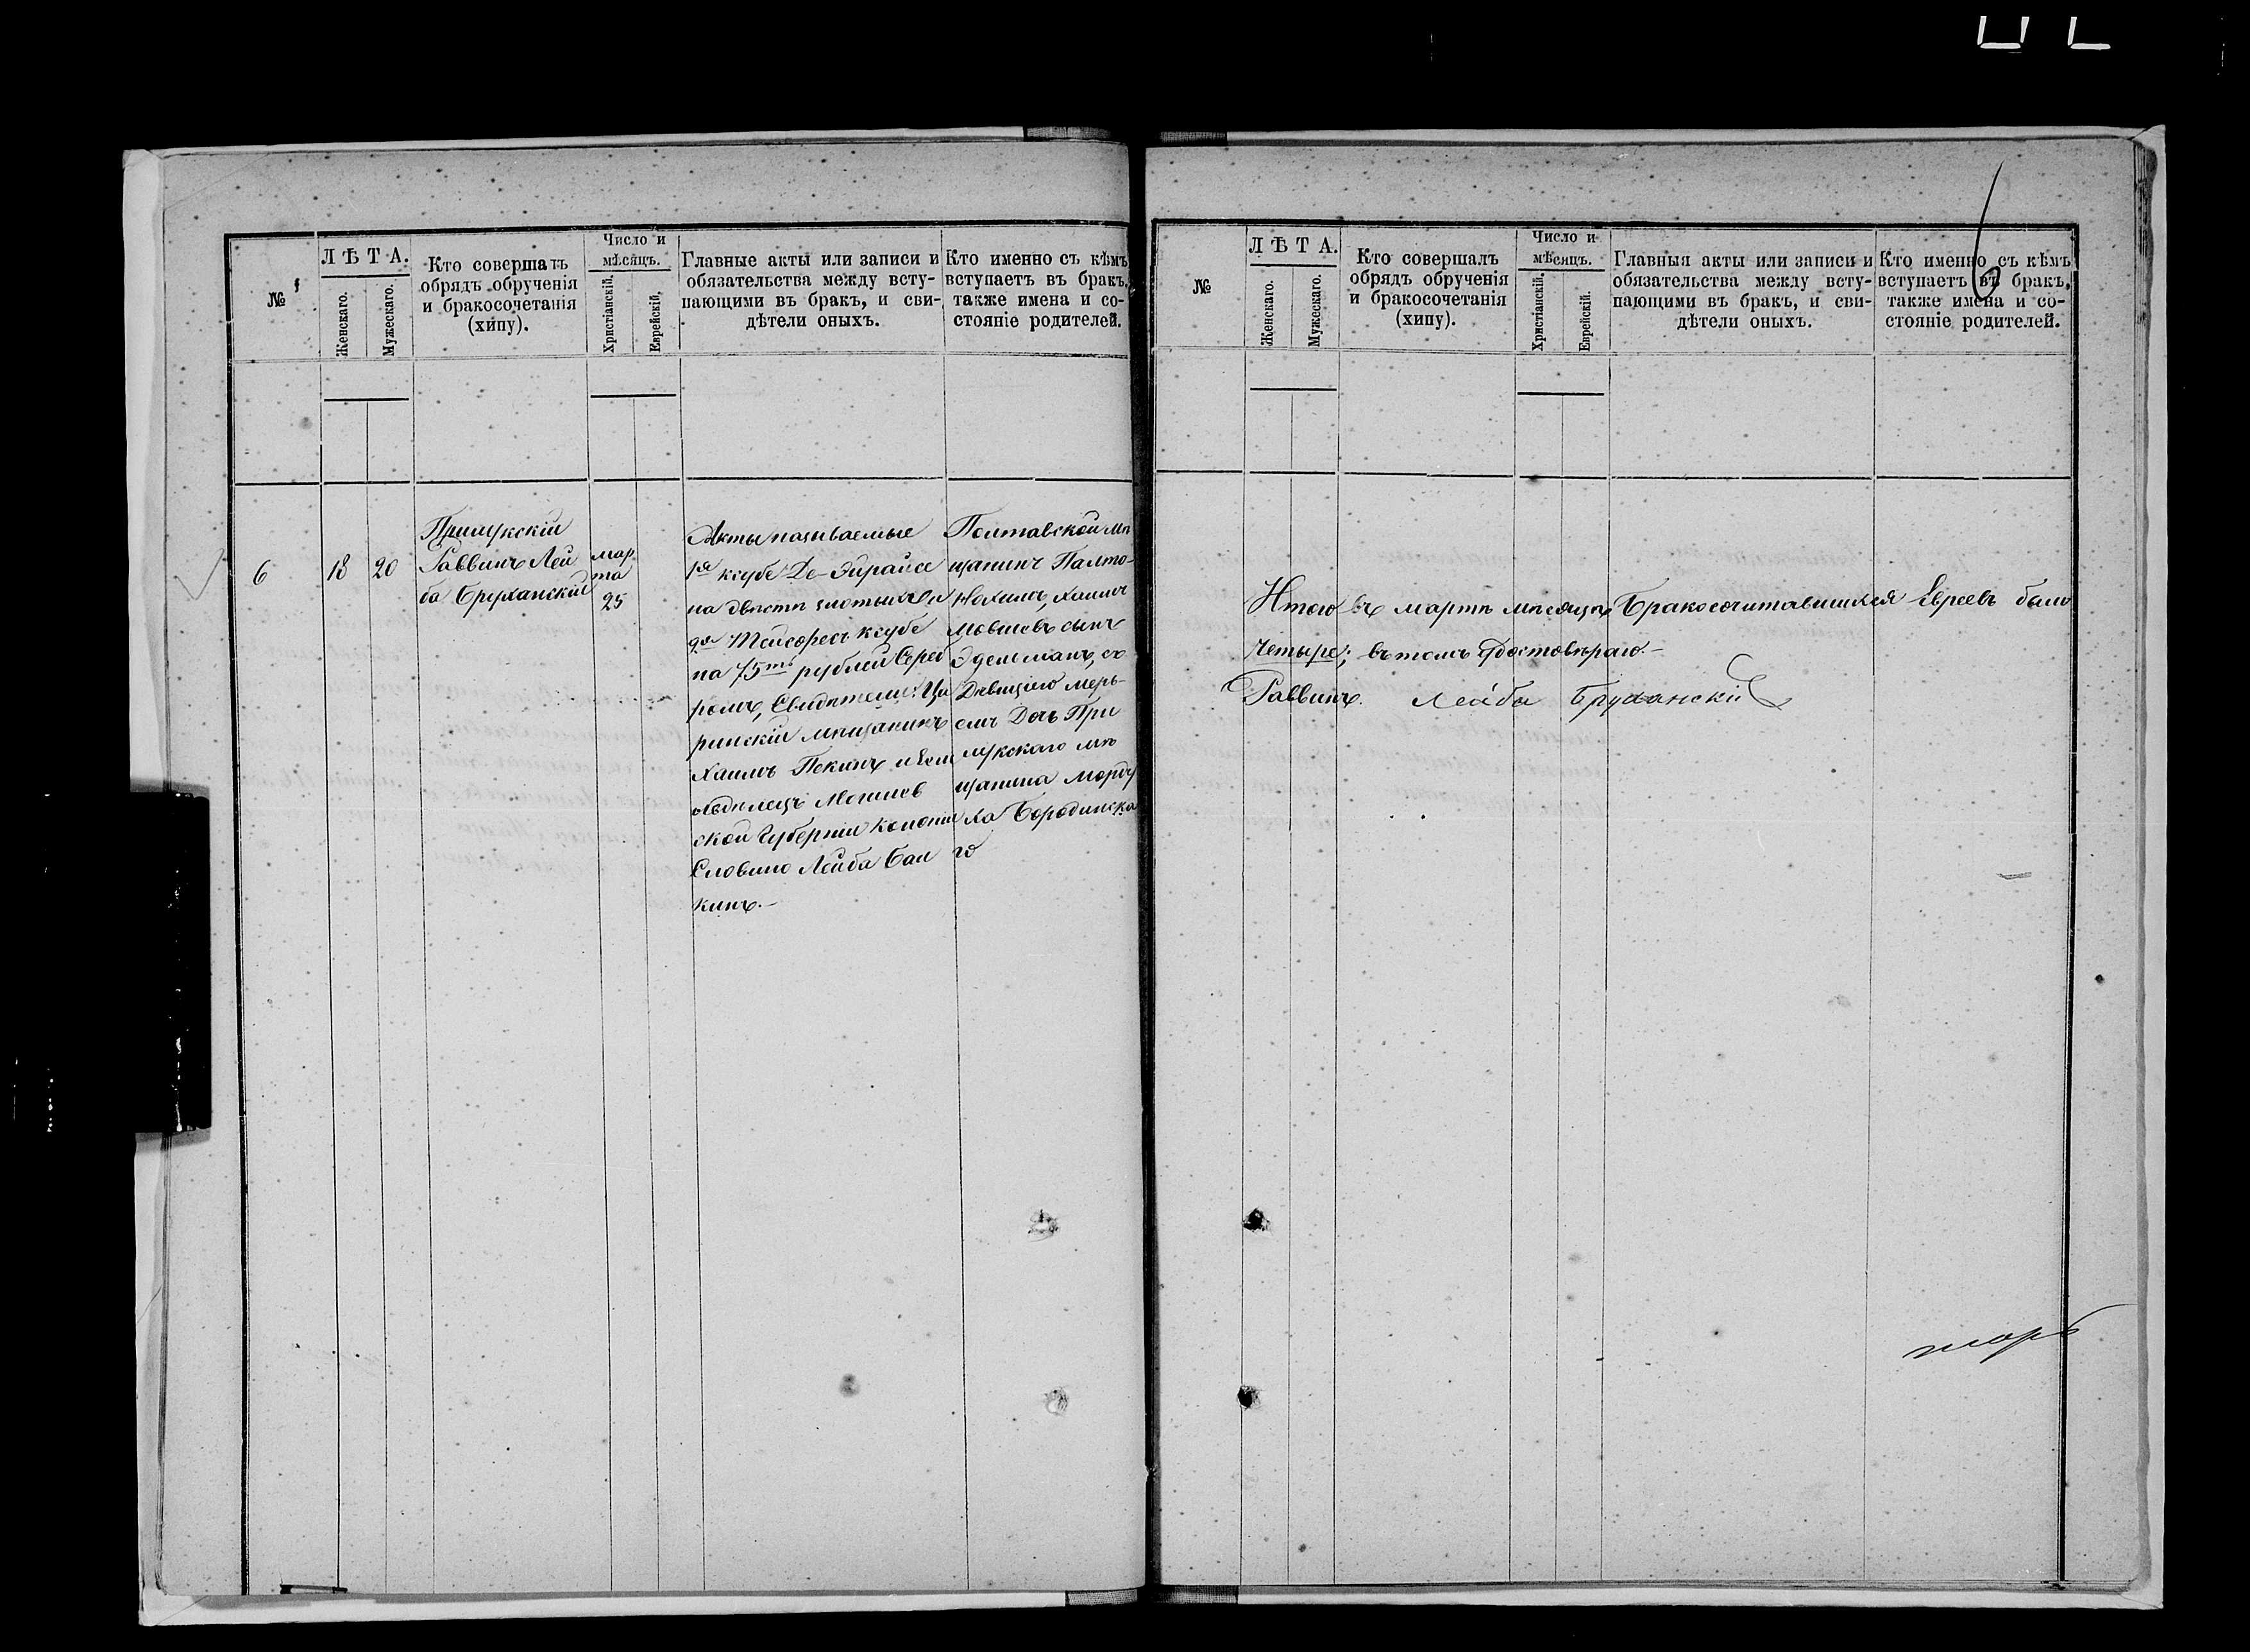 №
ЛѢТА.
Женскаго.
Мужескаго.
Кто совершалъ
обрядъ обрученія
и бракосочетанія
(хипу).
Число и
мѣсяцъ.
Христіанскій.
Еврейскій.
Главные акты или записи и
обязательства между всту-
пающими въ бракъ, и сви-
дѣтели оныхъ.
Кто именно съ кѣмъ
вступаетъ въ бракъ,
также имена и со-
стояніе родителей.
6
18
20
Прилукскій
Раввинъ Лей
ба Бруханскій
мар
та
25
Акты называемые
1е ксубе Де-Эйрайсе
на двѣсти злотыхъ и
2е Тойсефесъ ксубе
на 75ть рублей Сереб
ромъ, Свидѣтели:
ринскій мѣщанинъ
Хаимъ Пекинъ и Зем
ледѣлецъ Могилев
ской Губерніи колоніи
Словино Лейба Баи
кинъ.-
Полтавской мѣ
щанинъ Палто-
Нохимъ, Хаимъ
Мовшевъ сынъ
Эдельманъ, съ
Дѣвицею Мерь-
емъ Дочь При
лукскаго мѣ
щанина Морду
ха Бородинска
го
№
ЛѢТА.
Женскаго.
Мужескаго.
Кто совершалъ
обрядъ обрученія
и бракосочетанія
(хипу).
Число и
мѣсяцъ.
Христіанскій.
Еврейскій.
Главныя акты или записи и
обязательства между всту-
пающими въ бракъ, и сви-
дѣтели оныхъ.
Кто именно съ кѣмъ
вступаетъ въ бракъ,
также имена и со-
стояніе родителей.
Итого въ мартѣ мѣсяцѣ Бракосочитавшихся Евреевъ было
Четыре; въ томъ удостовѣряю.-
Раввинъ. Лейба Бруханскій